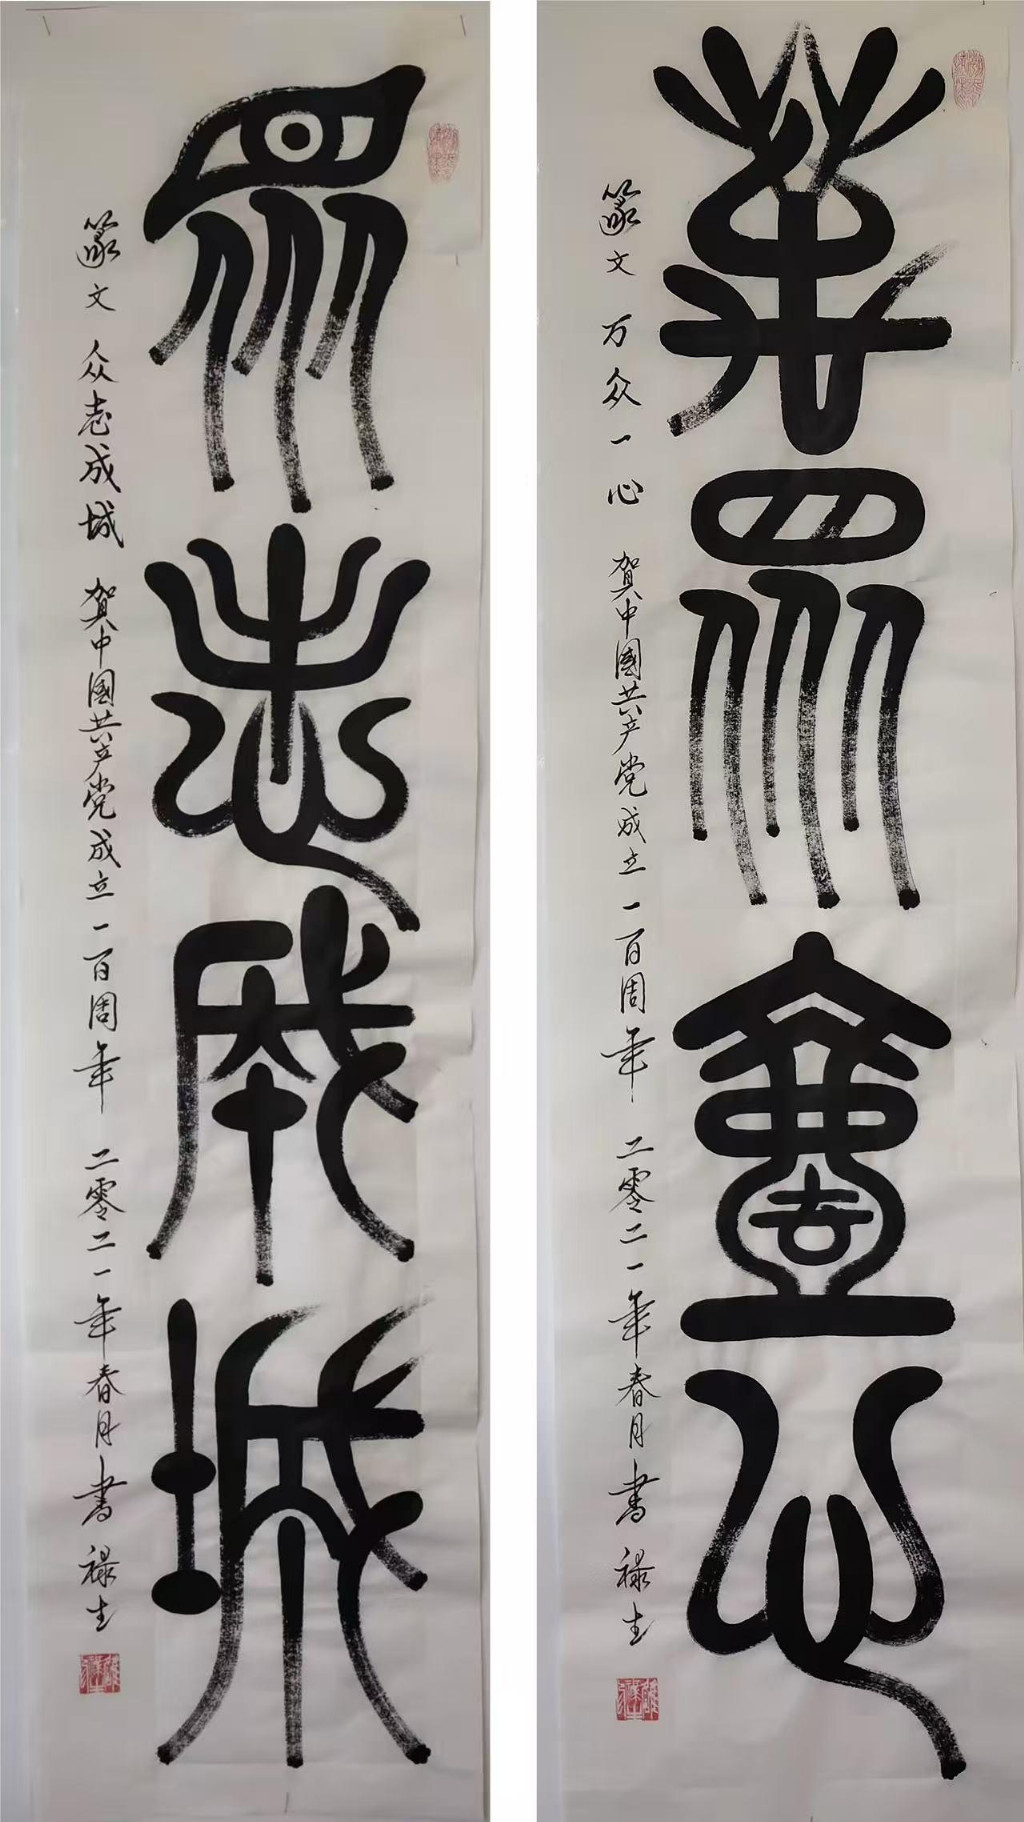 萬眾壹心
篆文 万众一心 贺中國共产党成立一百周年 二零二一年春月書 禄生
眾志成城
篆文 众志成城 贺中國共产党成立一百周年 二零二一年春月書 禄生